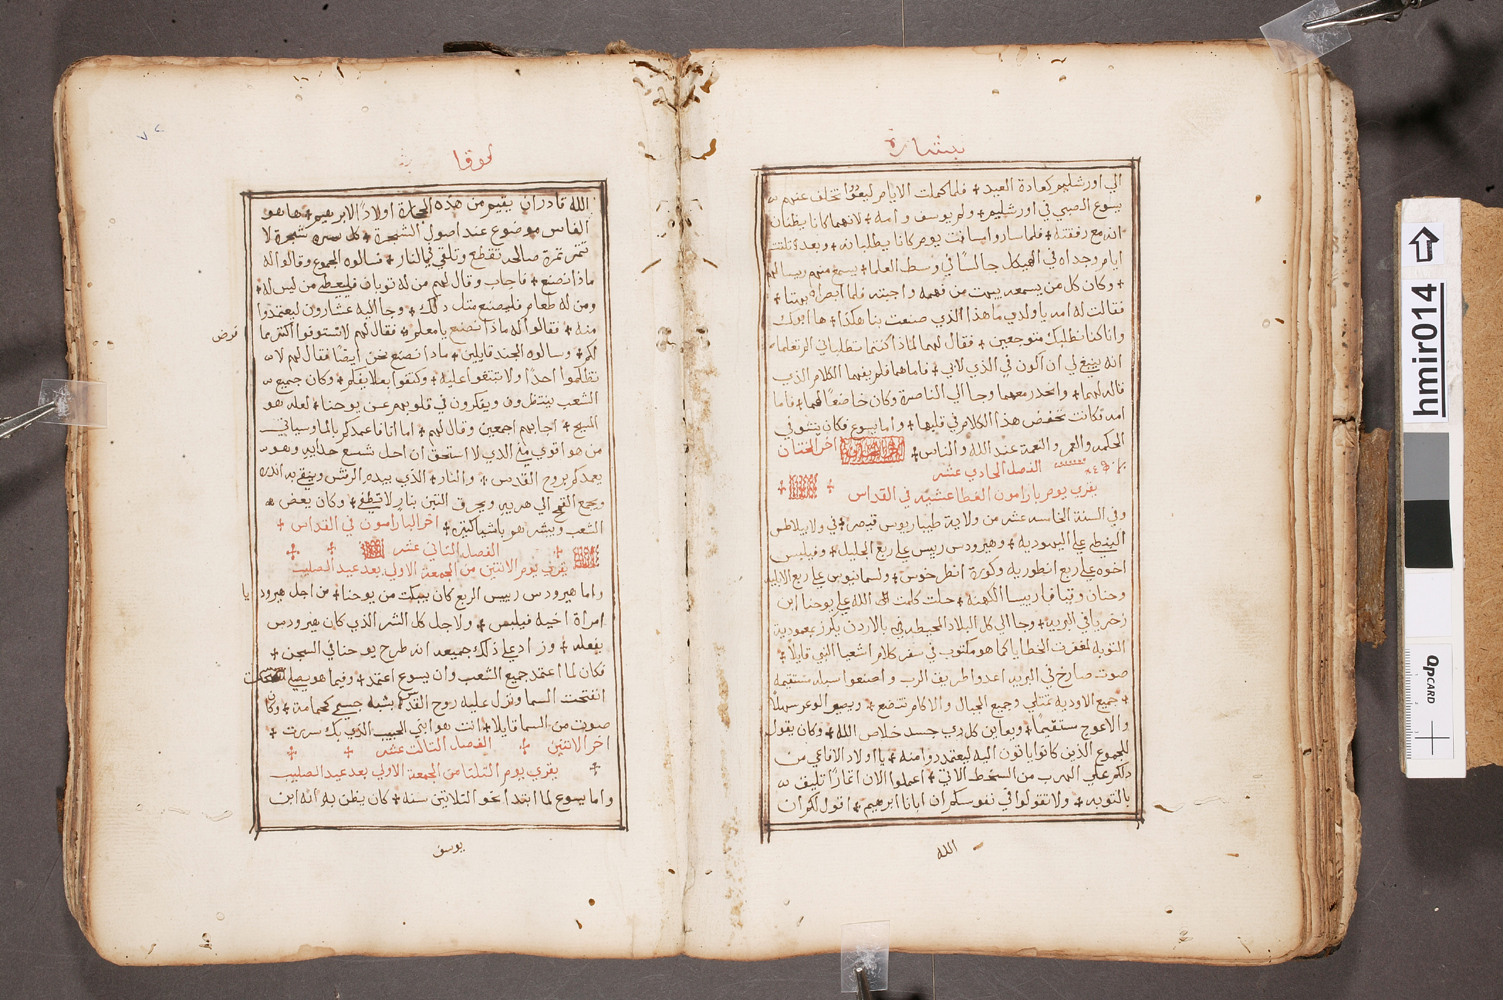 بشارة
الي اورشليم كعادة العيد ✢ فلما كملت الايام ليعودوا تخلف عنهم
يسوع الصبي في اورشليم ✢ ولم يوسف وامه ✢ لانهما كانا يظنان
انه مع رفقته ✢ فلما ساروا مسافت يوم كانا يطلبانه ✢ وبعد ثلثت
ايام وجداه في الهيكل جالسًا في وسط العلما ✢ يسمع منهم
✢ وكان كل من يسمعه يبهت من فهمه واجبته فلما ابصراه بهتا ✢
فقالت له امه يا ولدي ما هذا الذي صنعت بنا هكذا ✢ ها ابوك
وانا كنا نطلبك متوجعين ✢ فقال لهما لماذا كنتما تطلباني الم تعلما
انه ينبغي لي ان اكون في الذي لابي ✢ فاما هما فلم يفهما الكلام الذي
قاله لهما ✢ وانحدر معهما وجا الي الناصرة وكان خاضعًا لهما ✢ فاما
امه فكانت تحفض هذا الكلام في قلبها ✢ واما يسوع فكان ينشو في
الحكمه والعمر والنعمة عند الله والناس ✢ اخر الختان
الفصل الحادي عشر
يقري يوم بارامون الغطاس عشيه في القداس ✢ ✢
وفي السنة الخامسه عشر من ولاية طيباريوس قيصر ✢ في ولاية بيلاطس
البنطي علي اليهوديه ✢ وهيرودس رييس علي ربع الجليل ✢ وفيلبس
اخوه علي ربع انطوريه وكورة انطرخوس ✢ ولسانيوس علي ربع الابليه
وحنان وقيافا رييسا الكهنة ✢ حلت كلمت الله علي يوحنا ابن
زخريا في البريه ✢ وجا الي كل البلاد المحيطه بالاردن يكرز بمعمودية
التوبه لمغفرت الخطايا كما هو مكتوب في سفر كلام اشعيا النبي قايلاً ✢
صوت صارخ في البريه اعدوا طريق الرب واصنعوا سبله مستقيمه
✢ جميع الاوديه تمتلي وجميع الجبال والاكام تتضع ✢ ويصير الوعر سهلاً
والاعوج مستقيمًا ✢ ويعاين كل ذي جسد خلاص الله ✢ وكان يقول
للجموع الذين كانوا ياتون اليه ليعتمدوا منه ✢ يا اولاد الافاعي من
دلكم علي الهرب من السخط الاتي ✢ اعملوا الان اثمارًا تليق
بالتوبه ✢ ولا تقولوا في نفوسكم ان ابانا ابرهيم ✢ اقول لكم ان
الله
لوقا
الله قادر ان يقيم من هذه الحجارة اولادًا لابرهيم ✢ ها هو
الفاس موضوع عند اصول الشجرة ✢ كل شجرة لا
تتمر تمرة صالحه تقطع وتلقي في النار ✢ فسالوه الجموع وقالوا له
ماذا نصنع ✢ فاجاب وقال لهم من له توبان فليعطي من ليس له
ومن له طعام فليصنع متل ذلك ✢ وجا اليه عشارون ليعتمدوا
منه ✢ فقالوا له ماذا نصنع يا معلم ✢ فقال لهم لا تستوفوا اكتر مما
فرض
لكم ✢ وسالوه الجند قايلين ✢ ماذا نصنع نحن ايضًا فقال لهم لا
تظلموا احدًا ولا تبتغوا عليه ✢ وكتفوا بعلايفكم ✢ وكان جميع
الشعب ينتظرون ويفكرون في قلوبهم عن يوحنا ✢ لعله هو
المسيح ✢ اجابهم اجمعين وقال لهم ✢ اما انا فاعمدكم بالما وسياتي
من هو اقوي مني الذي لا استحق ان احل شسع حذاييه وهو
يعمدكم بروح القدس ✢ والنار ✢ الذي بيده الرفش وينقي به اندره
ويجمع القمح الي هريه ويحرق التبن بنار لا تطفي ✢ وكان بعض
الشعب ويبشرهم باشيا كتيرة ✢ اخر البارامون في القداس ✢
✢ الفصل الثاني عشر ✢ ✢
يقري يوم الاتنين من الجمعة الاولي بعد عيد الصليب
واما هيرودس رييس الربع كان يبكت من يوحنا ✢ من اجل هيروديا
امراة اخيه فيلبس ✢ ولاجل كل الشر الذي كان هيرودس
يفعله ✢ وزاد علي ذلك جميعه انه طرح يوحنا في السجن ✢
فكان لما اعتمد جميع الشعب وان يسوع اعتمد ✢ وفيما هو يصلي
انفتحت السما ونزل عليه روح القدس بشبه جسم كحمامة ✢ وكان
صوت من السما قايلا ✢ انت هو ابني الحبيب الذي بك سررت ✢
اخر الاتنين ✢ الفصل التالت عشر ✢ ✢
✢ يقري يوم التلتا من الجمعة الاولي بعد عيد الصليب
واما يسوع لما ابتدا نحو التلاتين سنة ✢ كان يظن به انه ابن
يوسف
hmir014
QPCARD